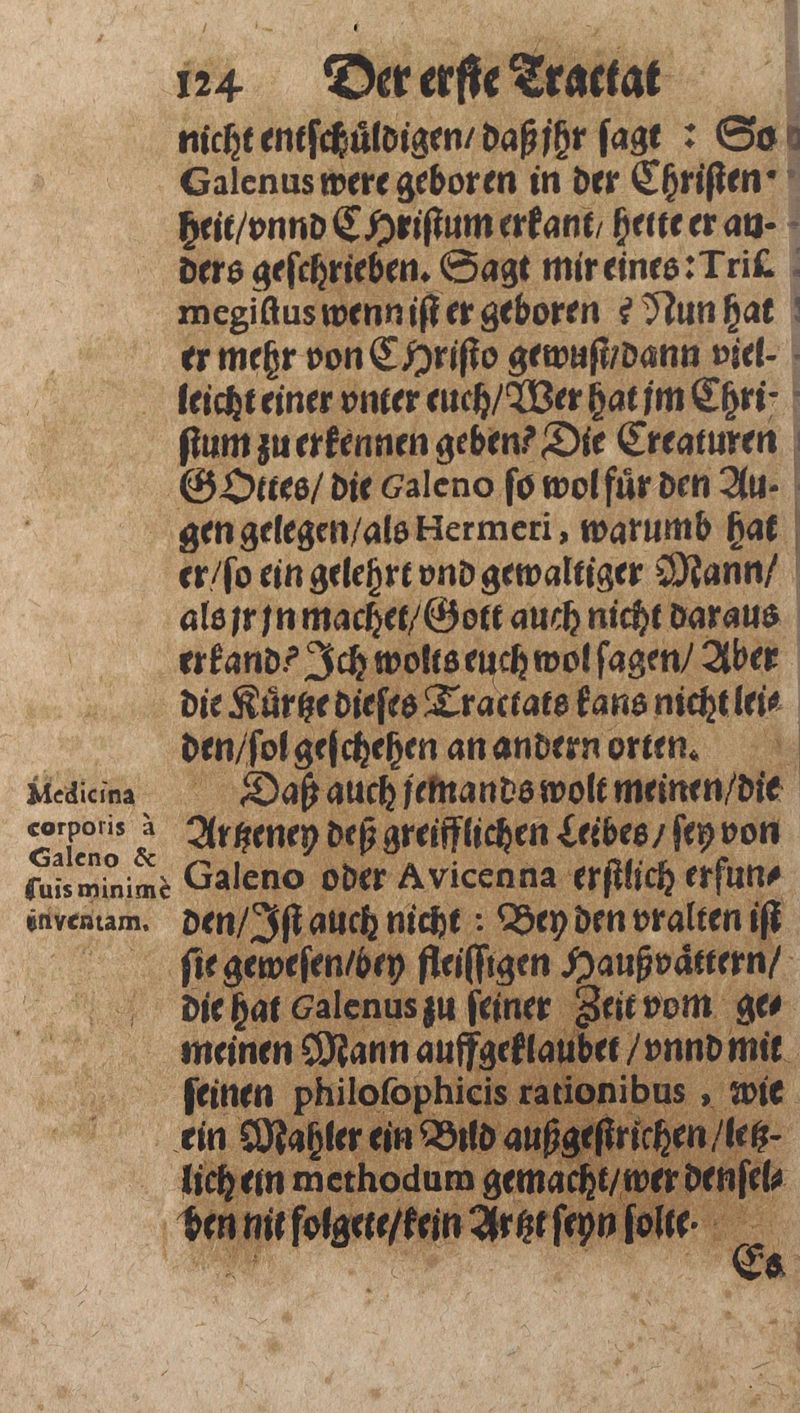 124 Der erste Tractat
nicht entschůldigen/ daß jhr sagt : So
Galenus were geboren in der Christen-
heit/vnnd CHristum erkant/ hette er an-
ders geschrieben. Sagt mir eines: Tris-
megistus wenn ist er geboren ? Nun hat
er mehr von CHristo gewust/dann viel-
leicht einer vnter euch/Wer hat jm Chri-
stum zu erkennen geben? Die Creaturen
GOttes/ die Galeno so wol für den Au-
gen gelegen/als Hermeri, warumb hat
er/so ein gelehrt vnd gewaltiger Mann/
als jr jn machet/Gott auch nicht daraus
erkand? Ich wolts euch wol sagen/ Aber
die Kůrtze dieses Tractats kans nicht lei-
den/sol geschehen an andern orten.
Daß auch jemands wolt meinen/die
Artzeney deß greifflichen Leibes/ sey von
Galeno oder Avicenna erstlich erfun-
den/Ist auch nicht : Bey den vralten ist
sie gewesen/bey fleissigen Haußvåttern/
die hat Galenus zu seiner Zeit vom ge-
meinen Mann auffgeklaubet /vnnd mit
seinen philosophicis rationibus , wie
ein Mahler ein Bild außgestrichen/letz-
lich ein methodum gemacht/wer densel-
ben nit folgete/kein Artzt seyn solte.
Es
Medicina
corporis à
Galeno &
suis minimè
inventam.